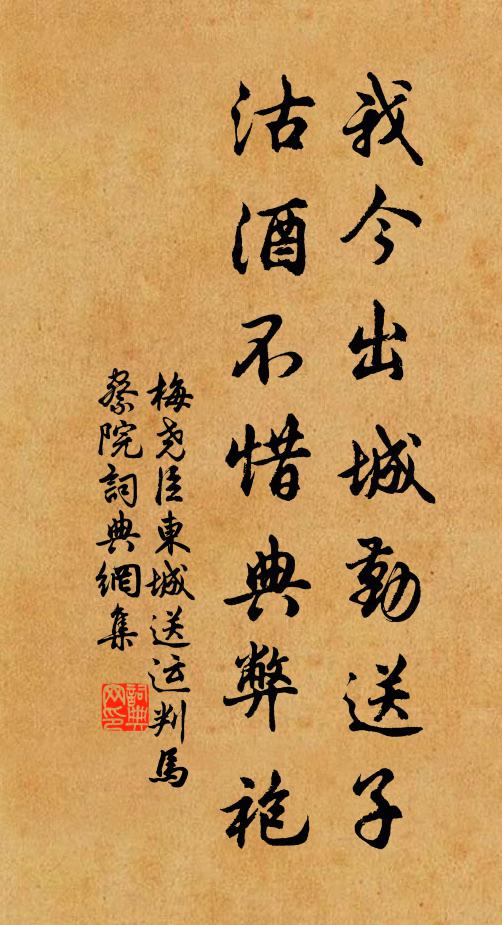 我今出城勤送子
沽酒不惜典弊袍
梅尧臣東城送运判馬
察院詞典網集
詞典网印